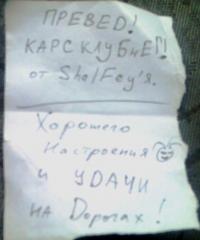 ПРЕВЕД!
КАРСКЛУБНЕГ!
от ShelFey'я.
Хорошего
Настроения
и УДАЧИ
на Дорогах!